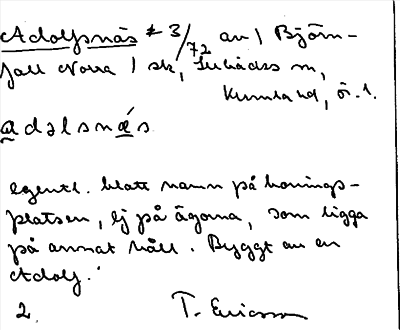 Adolfsnäs # 3/72 av / Björn-
fall Norra / sk, Lerbäcks sn,
Kumla hd, ör. l.
adəlsnǽs
egentl. blott namn på bonings-
platsen, ej på ägorna, som ligga
på annat håll. Byggt av en
Adolf.
2. T. Ericsson